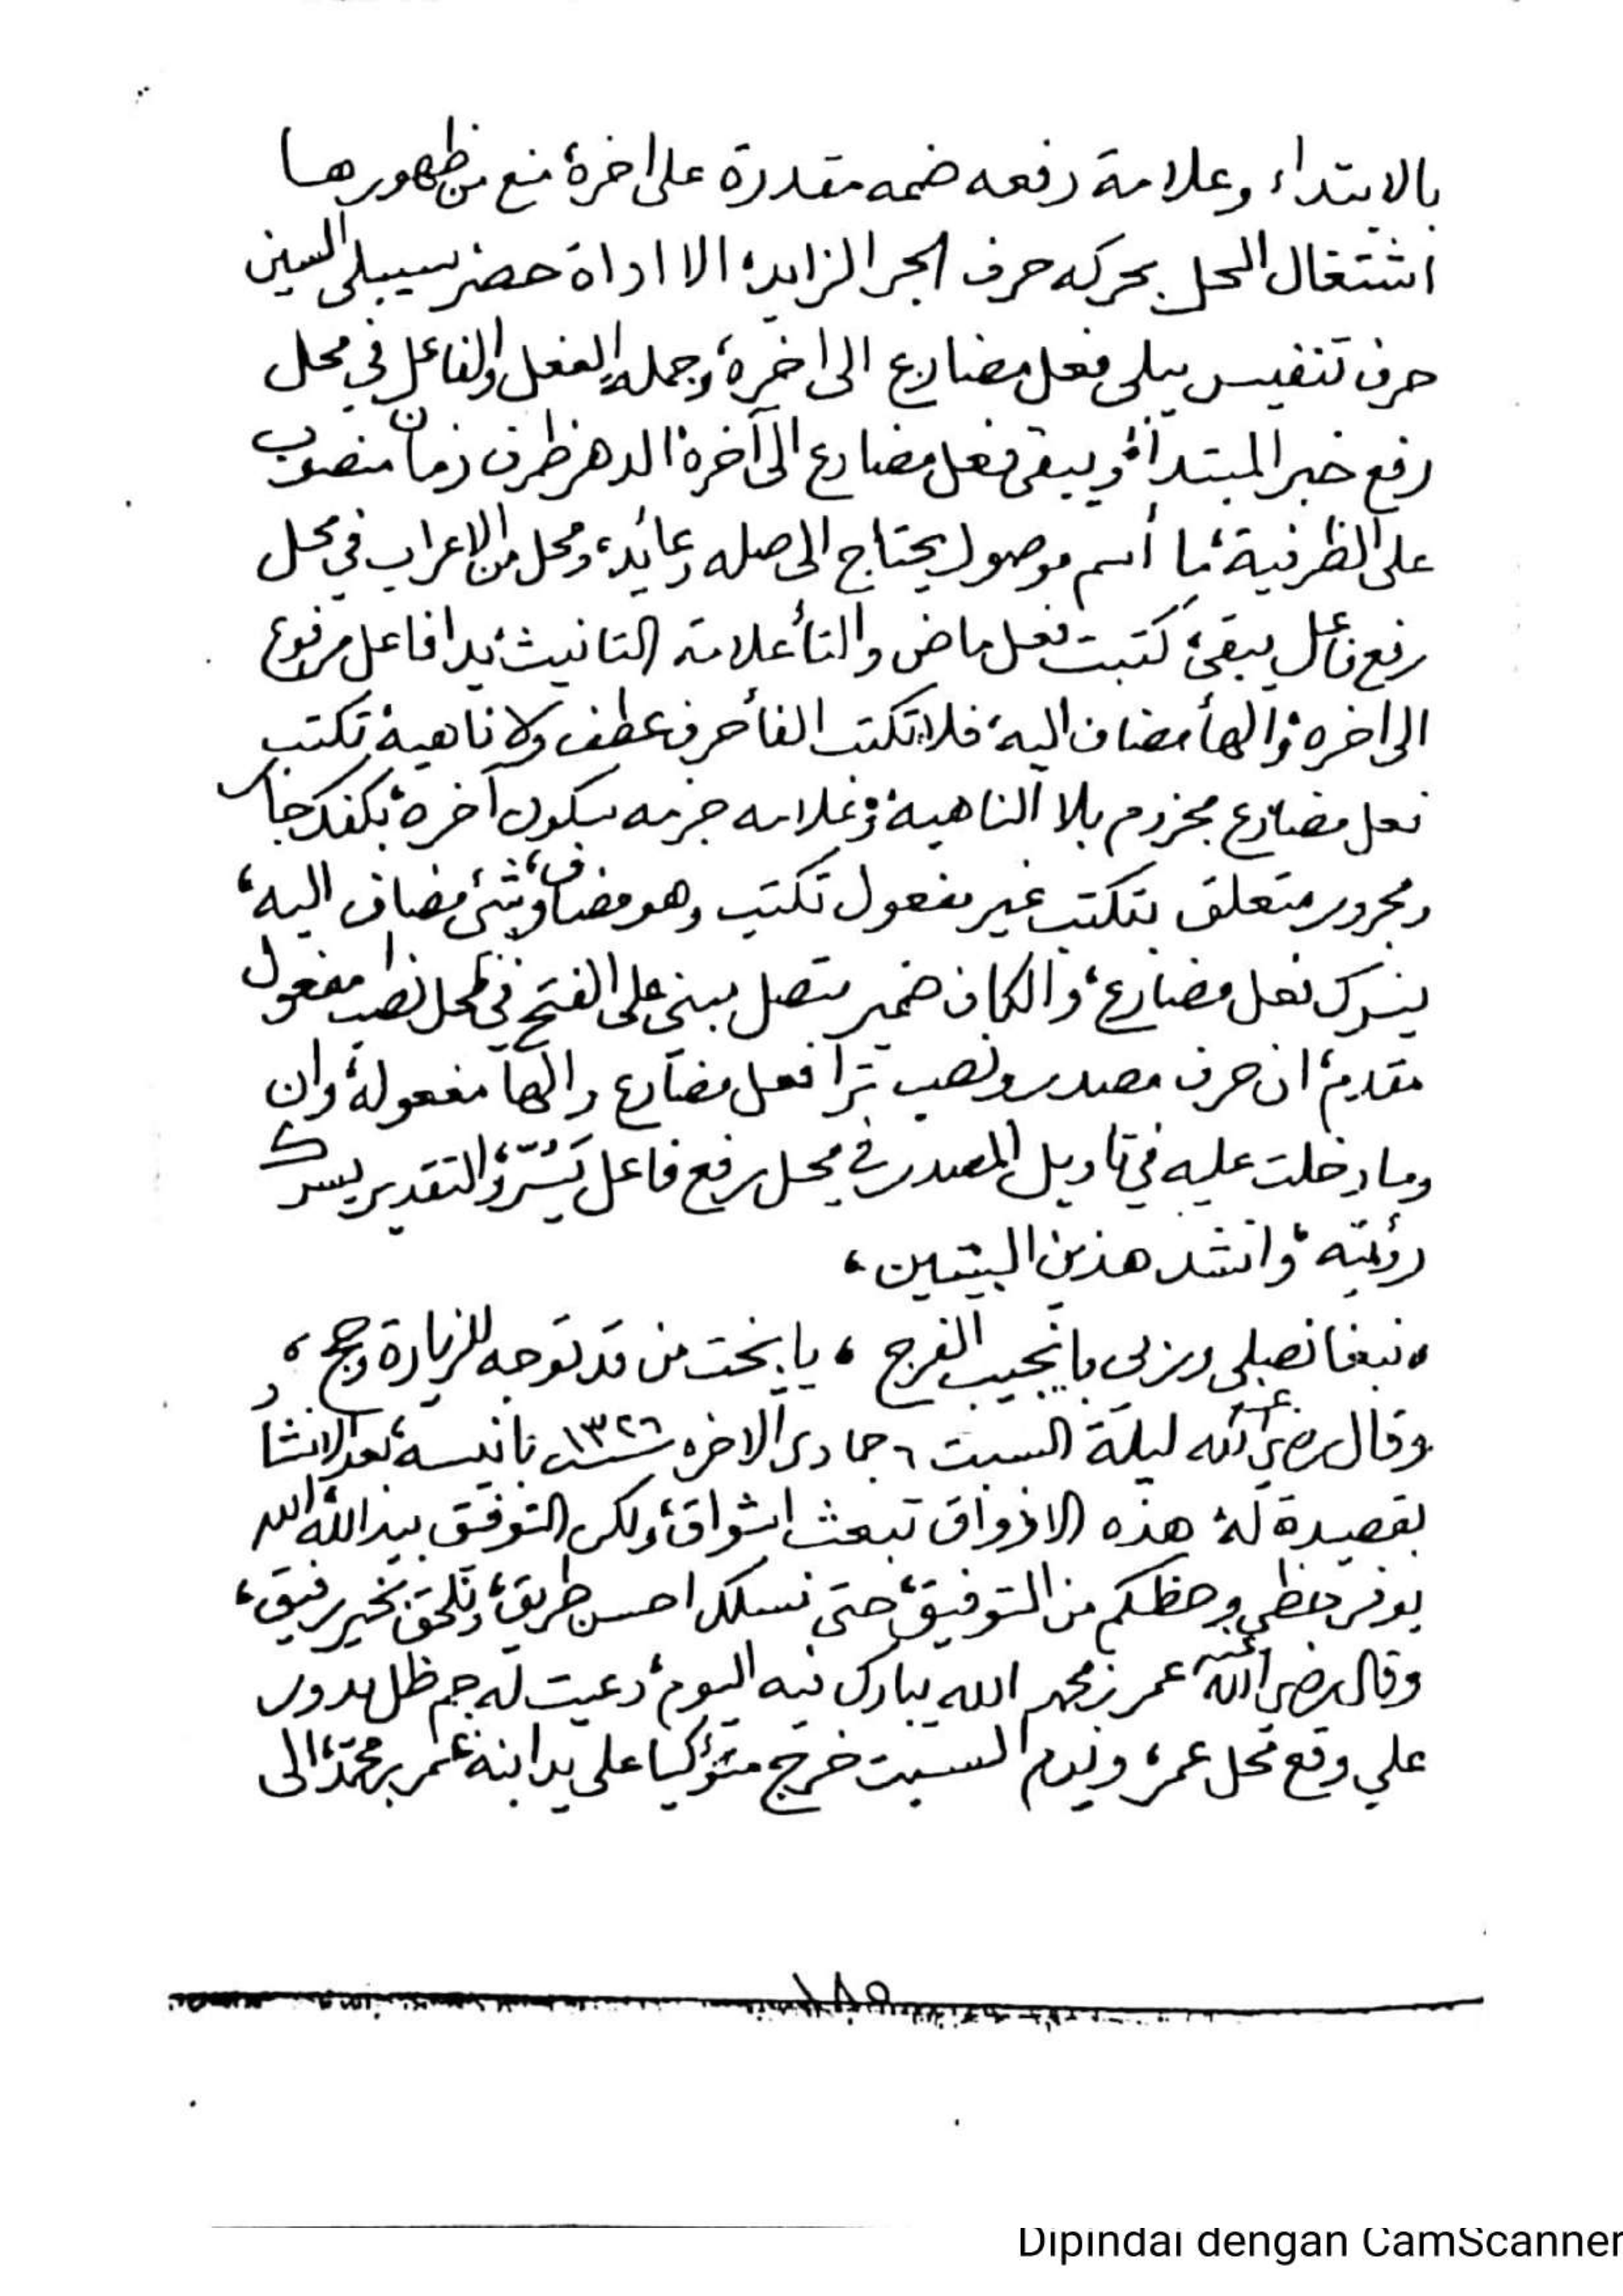 بالابتداء وعلامة رفعه ضمه مقدرة على اخره، منع من ظهورها
اشتغال المحل بحركه حرف الجر الزايد، الا اداة حصر سيبلى السين
حرف تنفيس يبلى فعل مضارع الى اخره، وجملة الفعل والفاعل في محل
رفع خبر المبتدأ، ويبقى فعل مضارع الى آخره، الدهر ظرف زمان منصوب
على الظرفية، ما أسم موصول يحتاج الى صله وعائد، ومحل من الاعراب في محل
رفع فاعل يبقى، كتبت فعل ماض والتأ علامة التانيث، يدا فاعل مرفوع
الى اخره، والهأ مضاف اليه، فلا تكتب الفأ حرف عطف ولا ناهية، تكتب
فعل مضارع مجزوم بلا الناهية، وعلامه جزمه سكون آخره، بكفك جار
ومجرور متعلق بتكتب غير مفعول تكتب وهو مضاف، وشئ مضاف اليه،
يسرك فعل مضارع، والكاف ضمير متصل مبني على الفتح في محل نصب مفعول
مقدم، ان حرف مصدر ونصب ترا فعل مضارع والها مفعوله، وان
وما دخلت عليه في تاويل المصدر في محل رفع فاعل يَسُرّ، والتقدير يسرك
رؤيته، وانشد هذين البيتين،
، نبغا نصبلي وربي با يجيب الفرج ، يا بخت من قد توجه للزيارة وحج ،
وقال رضي الله عنه ليلة السبت ٦ جمادى الاخره سنة ١٣٢٦ بانيسه، بعد الانشا
بقصيدة له، هذه الاذواق تبعث اشواق، ولكن التوفيق بيد الله، الله
يوفر حظي وحظكم من التوفيق، حتى نسلك احسن طريق، ونلحق بخير رفيق،
وقال رضي الله عنه عمر بن محمد الله يبارك فيه اليوم، دعيت له جم ظل يدور
علي وقع محل عمر، ويوم السبت خرج متوكيا على يد ابنه عمر بن محمد، الى
Dipindai dengan CamScanner